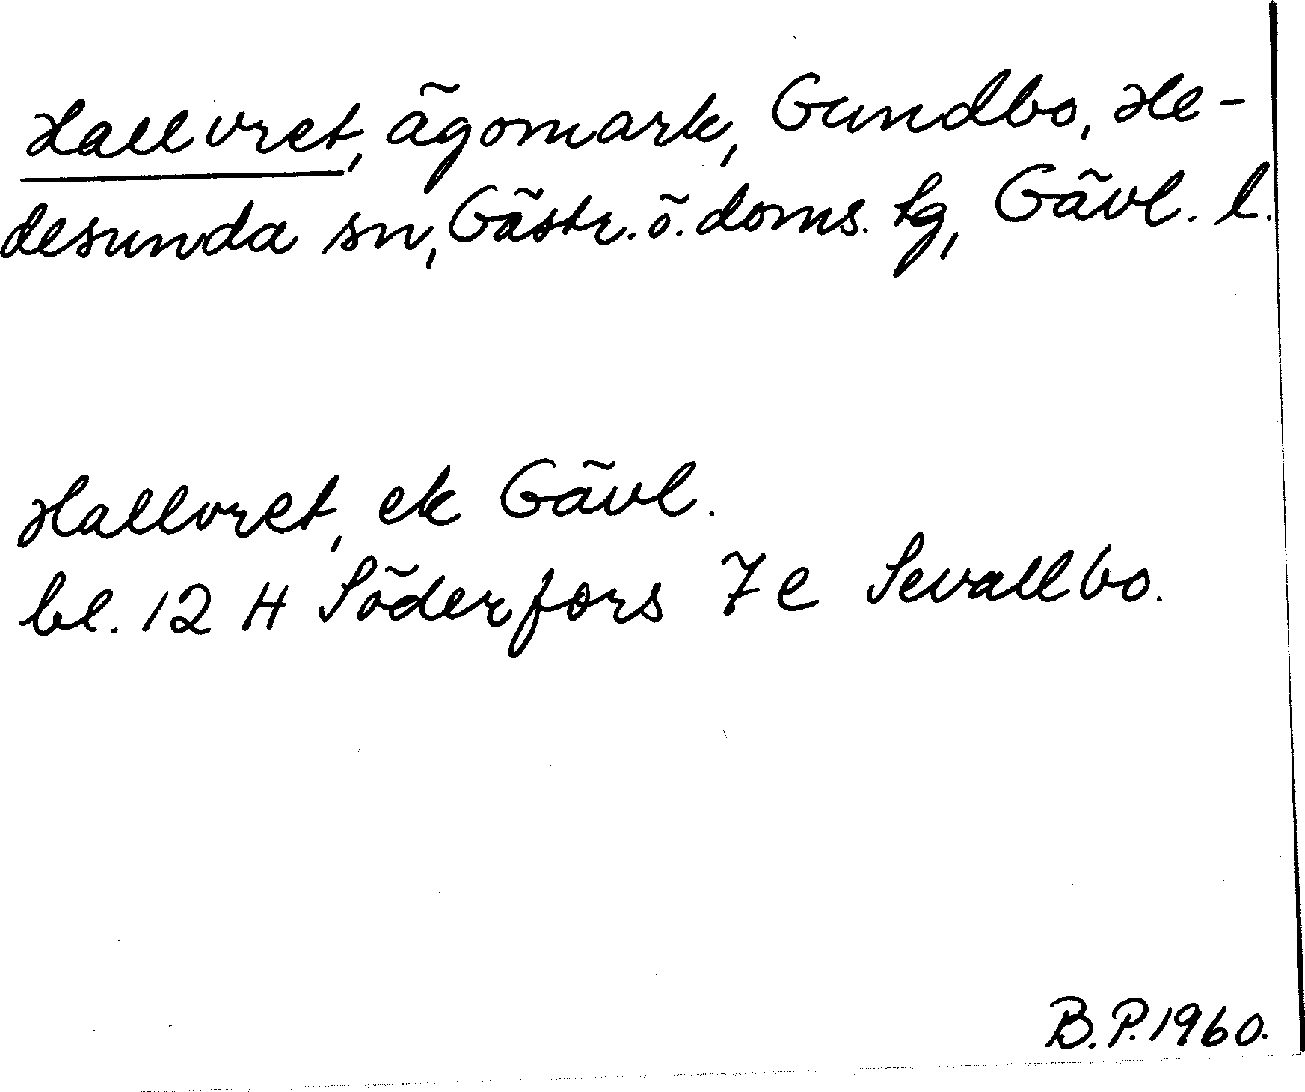 Hallvret, ägomark, Gundbo, He-
desunda sn, Gästr. ö. doms. tg, Gävl. l.
Hallvret, ek Gävl.
bl. 12 H Söderfors 7 e Sevallbo.
B.P. 1960.